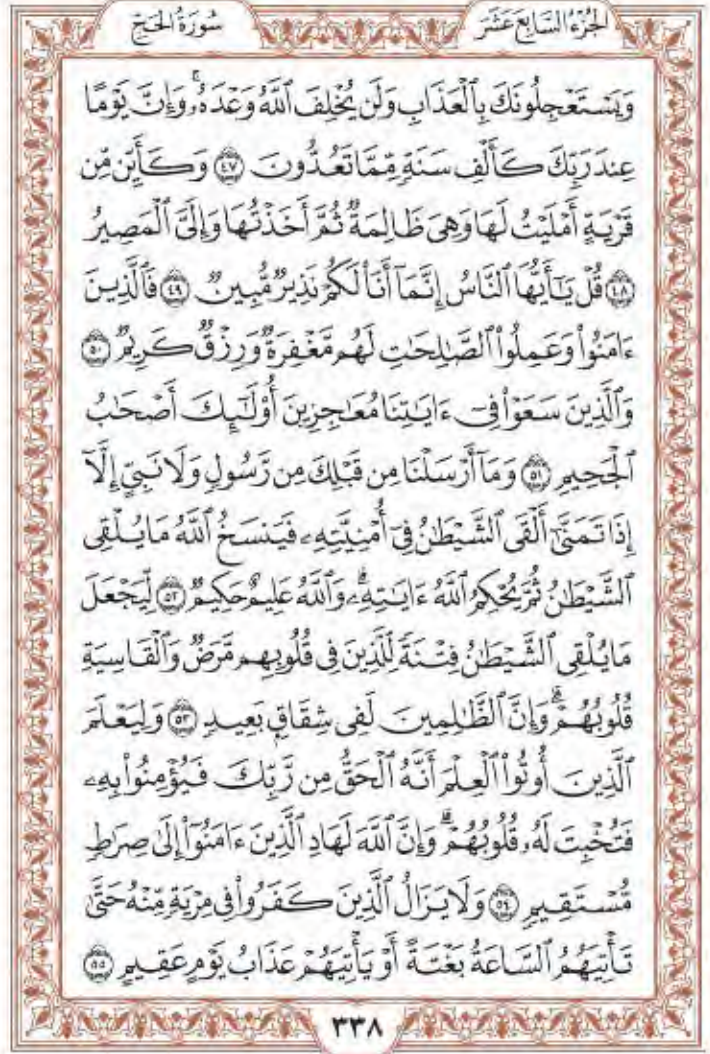 الجُزْءُ السَّابِعَ عَشَرَ سُورَةُ الحَجّ
وَيَسْتَعْجِلُونَكَ بِٱلْعَذَابِ وَلَن يُخْلِفَ ٱللَّهُ وَعْدَهُۥۚ وَإِنَّ يَوْمًا
عِندَ رَبِّكَ كَأَلْفِ سَنَةٍ مِّمَّا تَعُدُّونَ ٤٧ وَكَأَيِّن مِّن
قَرْيَةٍ أَمْلَيْتُ لَهَا وَهِىَ ظَالِمَةٌ ثُمَّ أَخَذْتُهَا وَإِلَىَّ ٱلْمَصِيرُ
٤٨ قُلْ يَٰٓأَيُّهَا ٱلنَّاسُ إِنَّمَآ أَنَا۠ لَكُمْ نَذِيرٌ مُّبِينٌ ٤٩ فَٱلَّذِينَ
ءَامَنُوا۟ وَعَمِلُوا۟ ٱلصَّٰلِحَٰتِ لَهُم مَّغْفِرَةٌ وَرِزْقٌ كَرِيمٌ ٥٠
وَٱلَّذِينَ سَعَوْا۟ فِىٓ ءَايَٰتِنَا مُعَٰجِزِينَ أُو۟لَٰٓئِكَ أَصْحَٰبُ
ٱلْجَحِيمِ ٥١ وَمَآ أَرْسَلْنَا مِن قَبْلِكَ مِن رَّسُولٍ وَلَا نَبِىٍّ إِلَّآ
إِذَا تَمَنَّىٰٓ أَلْقَى ٱلشَّيْطَٰنُ فِىٓ أُمْنِيَّتِهِۦ فَيَنسَخُ ٱللَّهُ مَا يُلْقِى
ٱلشَّيْطَٰنُ ثُمَّ يُحْكِمُ ٱللَّهُ ءَايَٰتِهِۦۗ وَٱللَّهُ عَلِيمٌ حَكِيمٌ ٥٢ لِّيَجْعَلَ
مَا يُلْقِى ٱلشَّيْطَٰنُ فِتْنَةً لِّلَّذِينَ فِى قُلُوبِهِم مَّرَضٌ وَٱلْقَاسِيَةِ
قُلُوبُهُمْۗ وَإِنَّ ٱلظَّٰلِمِينَ لَفِى شِقَاقٍۭ بَعِيدٍ ٥٣ وَلِيَعْلَمَ
ٱلَّذِينَ أُوتُوا۟ ٱلْعِلْمَ أَنَّهُ ٱلْحَقُّ مِن رَّبِّكَ فَيُؤْمِنُوا۟ بِهِۦ
فَتُخْبِتَ لَهُۥ قُلُوبُهُمْۗ وَإِنَّ ٱللَّهَ لَهَادِ ٱلَّذِينَ ءَامَنُوٓا۟ إِلَىٰ صِرَٰطٍ
مُّسْتَقِيمٍ ٥٤ وَلَا يَزَالُ ٱلَّذِينَ كَفَرُوا۟ فِى مِرْيَةٍ مِّنْهُ حَتَّىٰ
تَأْتِيَهُمُ ٱلسَّاعَةُ بَغْتَةً أَوْ يَأْتِيَهُمْ عَذَابُ يَوْمٍ عَقِيمٍ ٥٥
٣٣٨